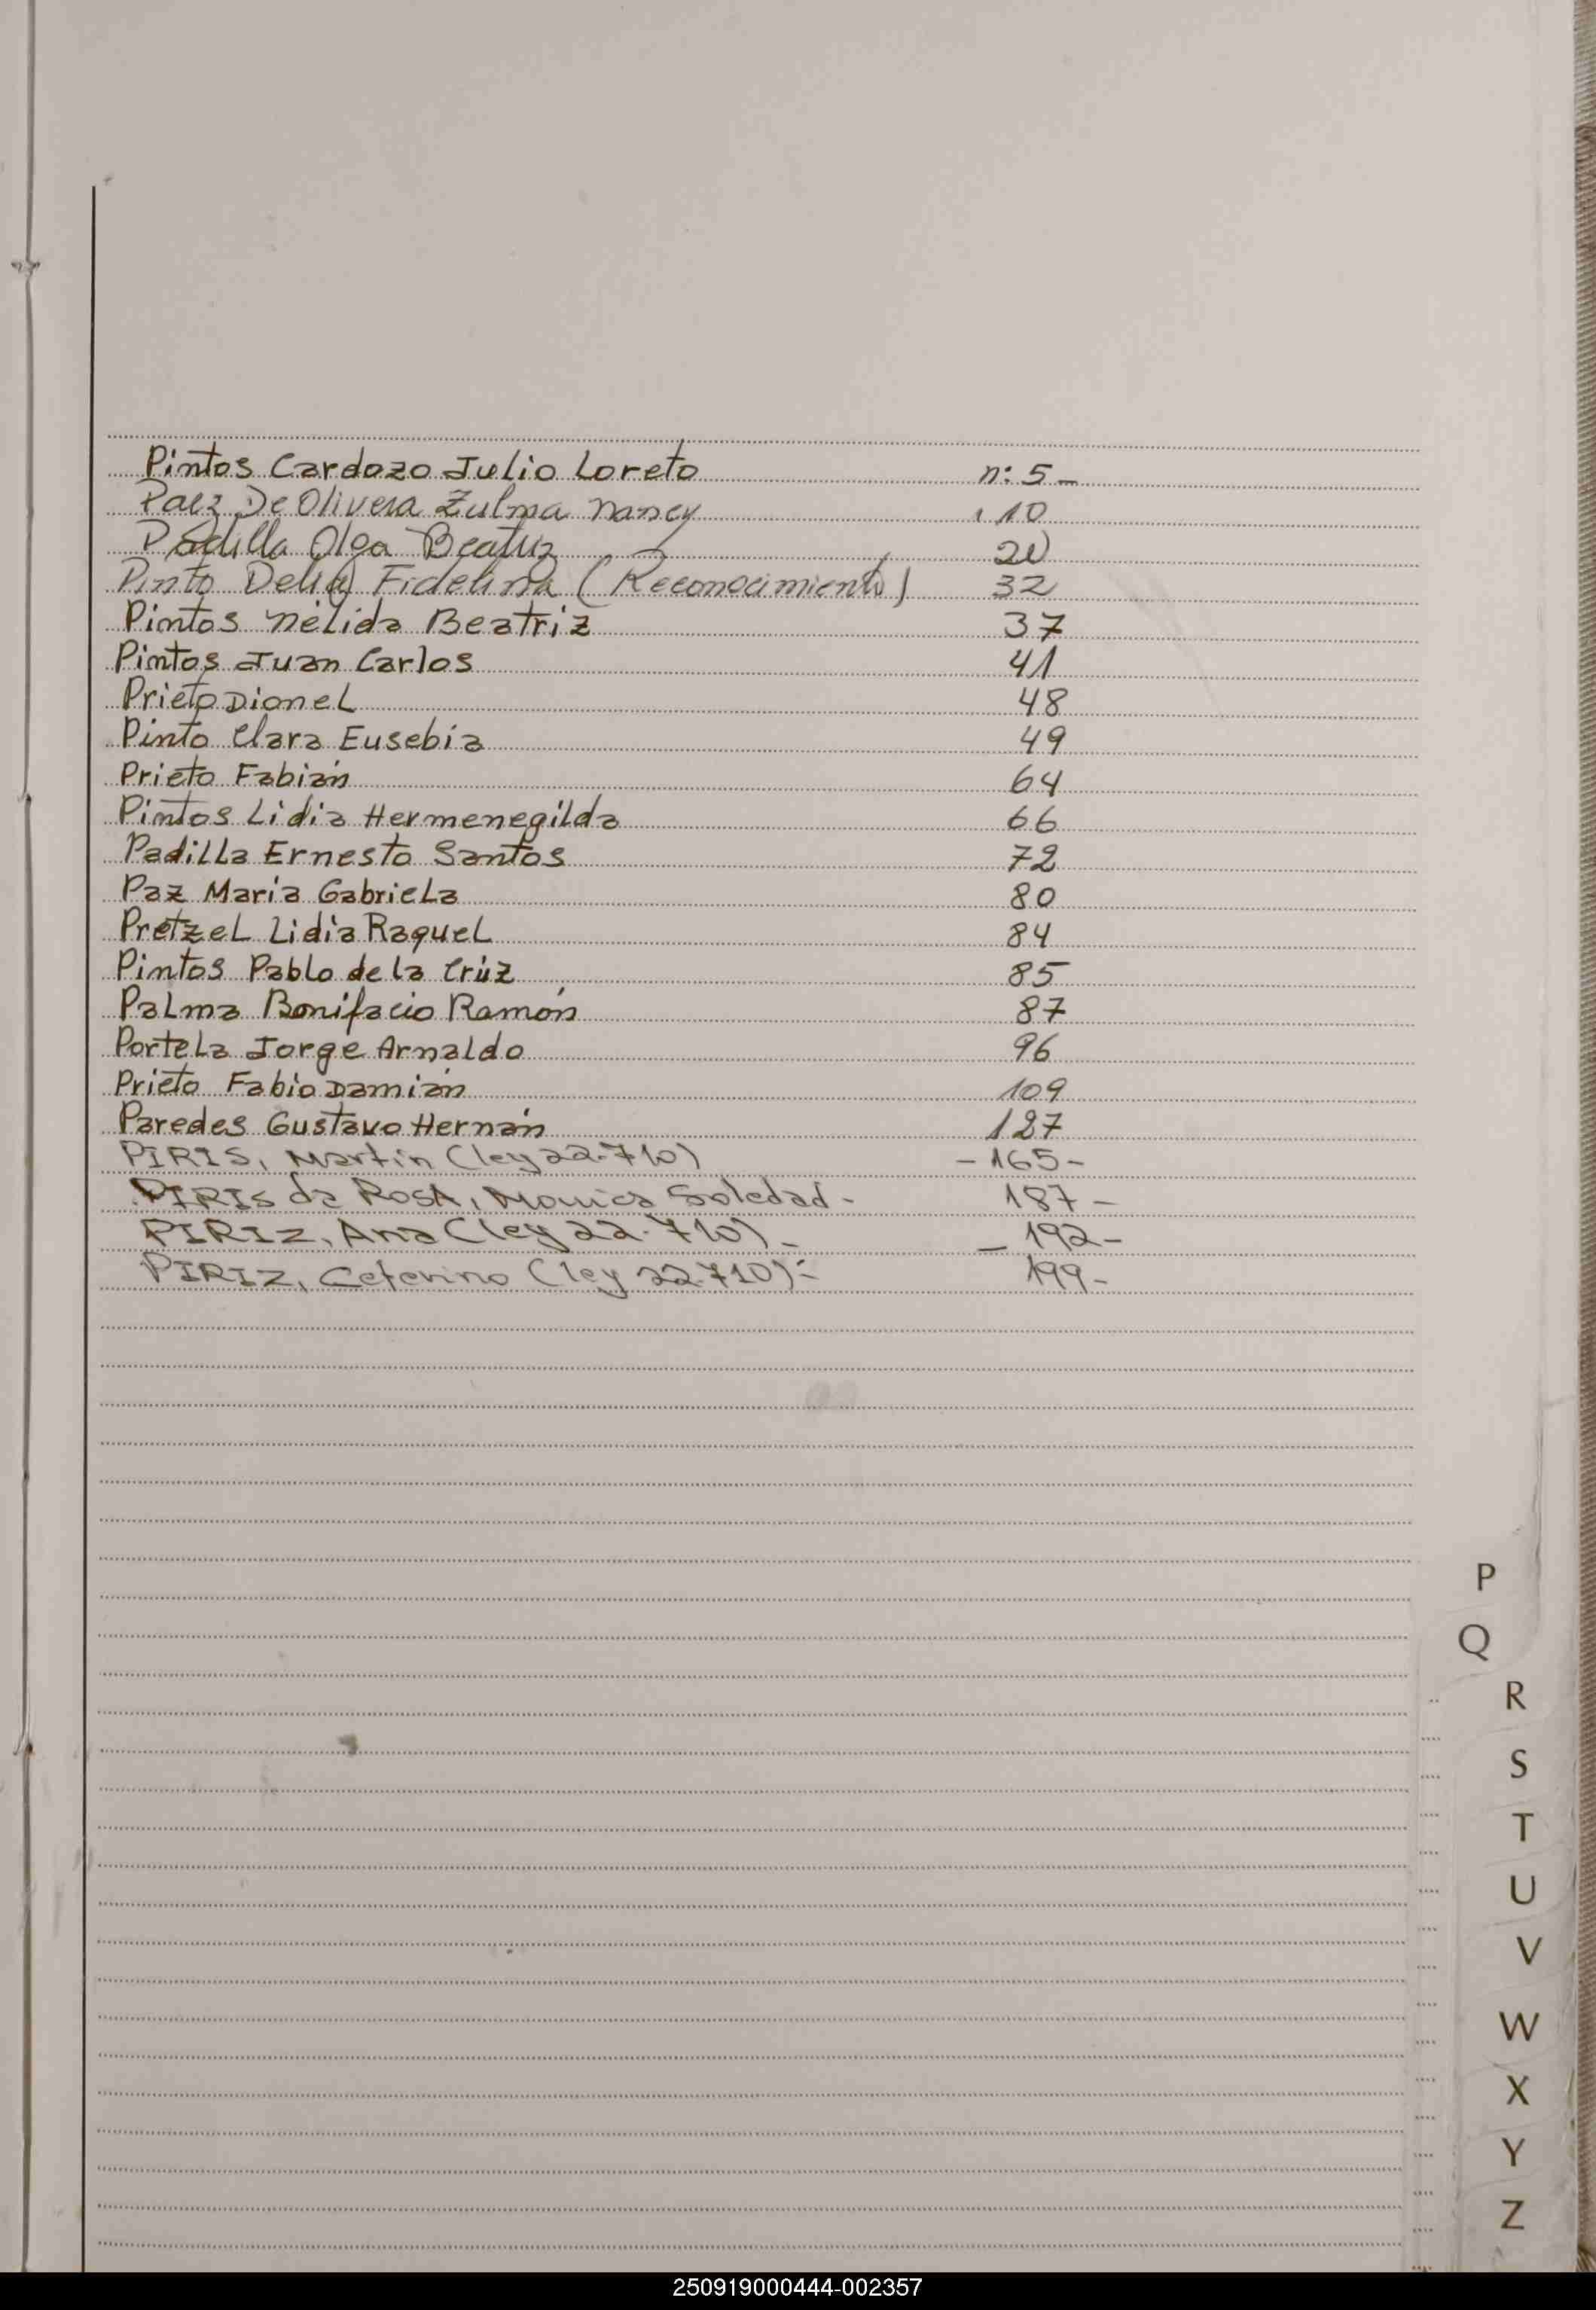 Pintos Cardozo Julio Loreto n: 5 –
Paez De Olivera Zulma Nancy 10
Padilla Olga Beatriz 20
Pinto Delia Fidelina (Reconocimiento) 32
Pintos Nélida Beatriz 37
Pintos Juan Carlos 41
Prieto Dionel 48
Pinto Clara Eusebia 49
Prieto Fabián 64
Pintos Lidia Hermenegilda 66
Padilla Ernesto Santos 72
Paz María Gabriela 80
Pretzel Lidia Raquel 84
Pintos Pablo de la Crúz 85
Palma Bonifacio Ramón 87
Portela Jorge Arnaldo 96
Prieto Fabio Damián 109
Paredes Gustavo Hernán 127
PIRIS, Martín (ley 22.710) – 165 –
PIRIS da ROSA, Monica Soledad – 187 –
PIRIZ, Ana (ley 22.710) – – 192 –
PIRIZ, Ceferino (ley 22.710) – 199 –
P
Q
R
S
T
U
V
W
X
Y
Z
250919000444-002357